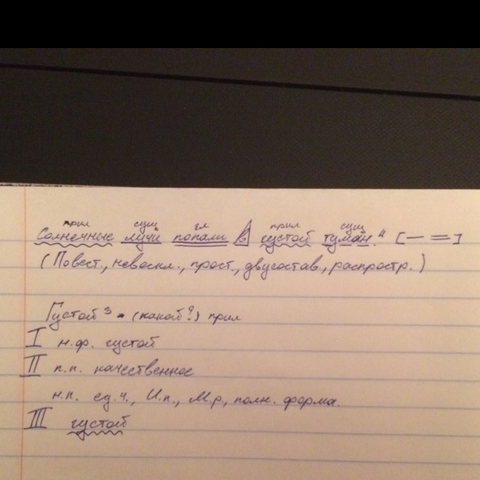 прил сущ гл прил сущ
Солнечные лучи попали в густой туман.⁴ [— =]
(Повест., невоскл., прост., двусостав., распростр.)
Густой³ - (какой?) прил
I н.ф. густой
II п.п. качественное
н.п. ед.ч., И.п., М.р, полн. форма.
III густой